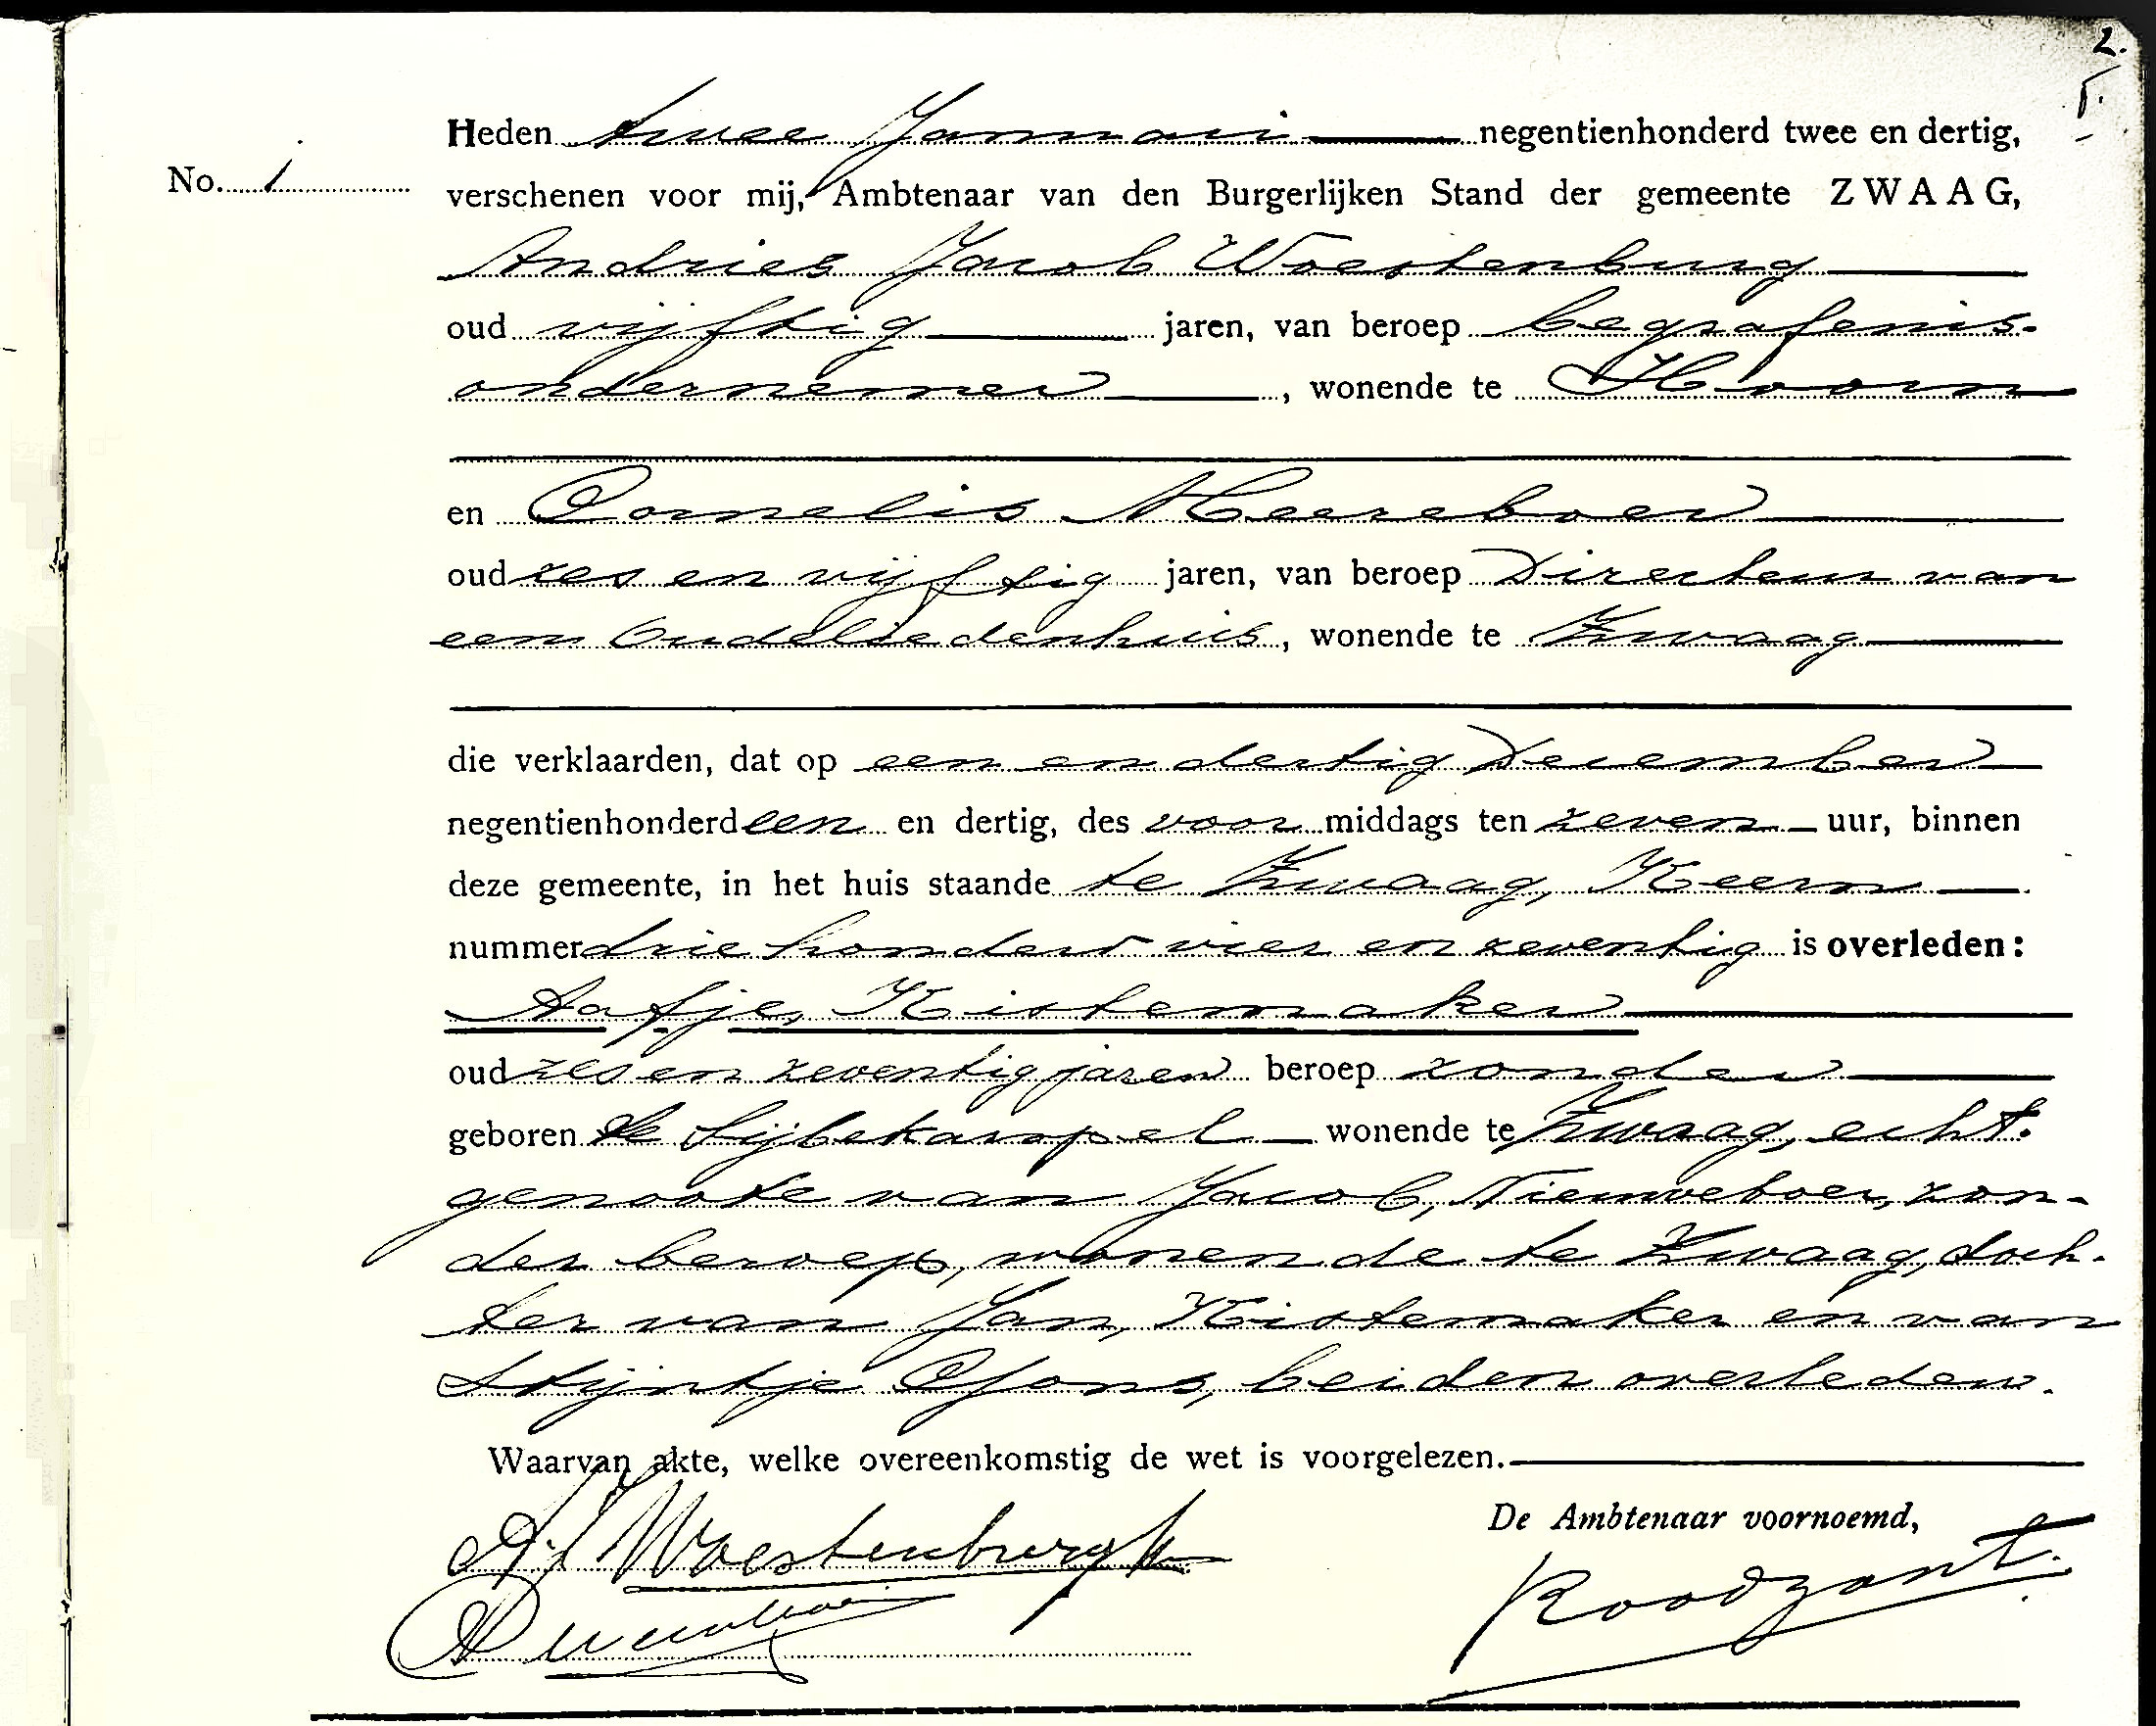 2.
1.
Heden twee Januari negentienhonderd twee en dertig,
No. 1
verschenen voor mij, Ambtenaar van den Burgerlijken Stand der gemeente ZWAAG,
Andries Jacob Woestenburg
oud vijftig jaren, van beroep begrafenis-
ondernemer, wonende te Hoorn
en Cornelis Meereboer
oud zes en vijftig jaren, van beroep Directeur van
een Oudeliedenhuis, wonende te Zwaag
die verklaarden, dat op een en dertig December
negentienhonderd een en dertig, des voor middags ten zeven uur, binnen
deze gemeente, in het huis staande te Zwaag, Keern
nummer drie honderd vier en zeventig is overleden:
Aafje, Kistemaker
oud zes en zeventig jaren beroep zonder
geboren te Sijbekarspel wonende te Zwaag, echt-
genoote van Jacob, Nieuweboer, zon-
der beroep, wonende te Zwaag, doch-
ter van Jan, Kistemaker en van
Stijntje Ojons, beiden overleden.
Waarvan akte, welke overeenkomstig de wet is voorgelezen.
De Ambtenaar voornoemd,
A J Woestenburg
Roodzant.